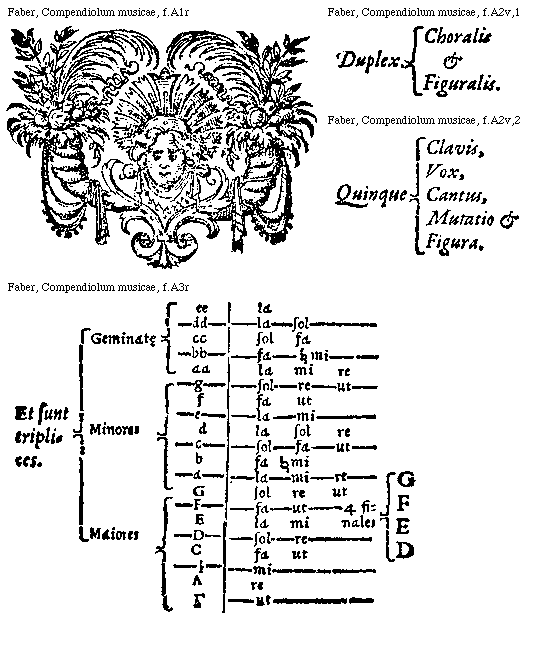 Faber, Compendiolum musicae, f.A1r
Faber, Compendiolum musicae, f.A2v,1
Duplex
Choralis
&
Figuralis.
Faber, Compendiolum musicae, f.A2v,2
Quinque
Clavis,
Vox,
Cantus,
Mutatio &
Figura.
Faber, Compendiolum musicae, f.A3r
Et ſunt
tripli-
ces.
Geminatę
Minores
Maiores
ee la
dd la ſol
cc ſol fa
bb fa ♮ mi
aa la mi re
g ſol re ut
f fa ut
e la mi
d la ſol re
c ſol fa ut
b fa ♮ mi
a la mi re
G ſol re ut
F fa ut 4 fi=
E la mi nales
D ſol re
C fa ut
♮ mi
A re
Γ ut
G
F
E
D